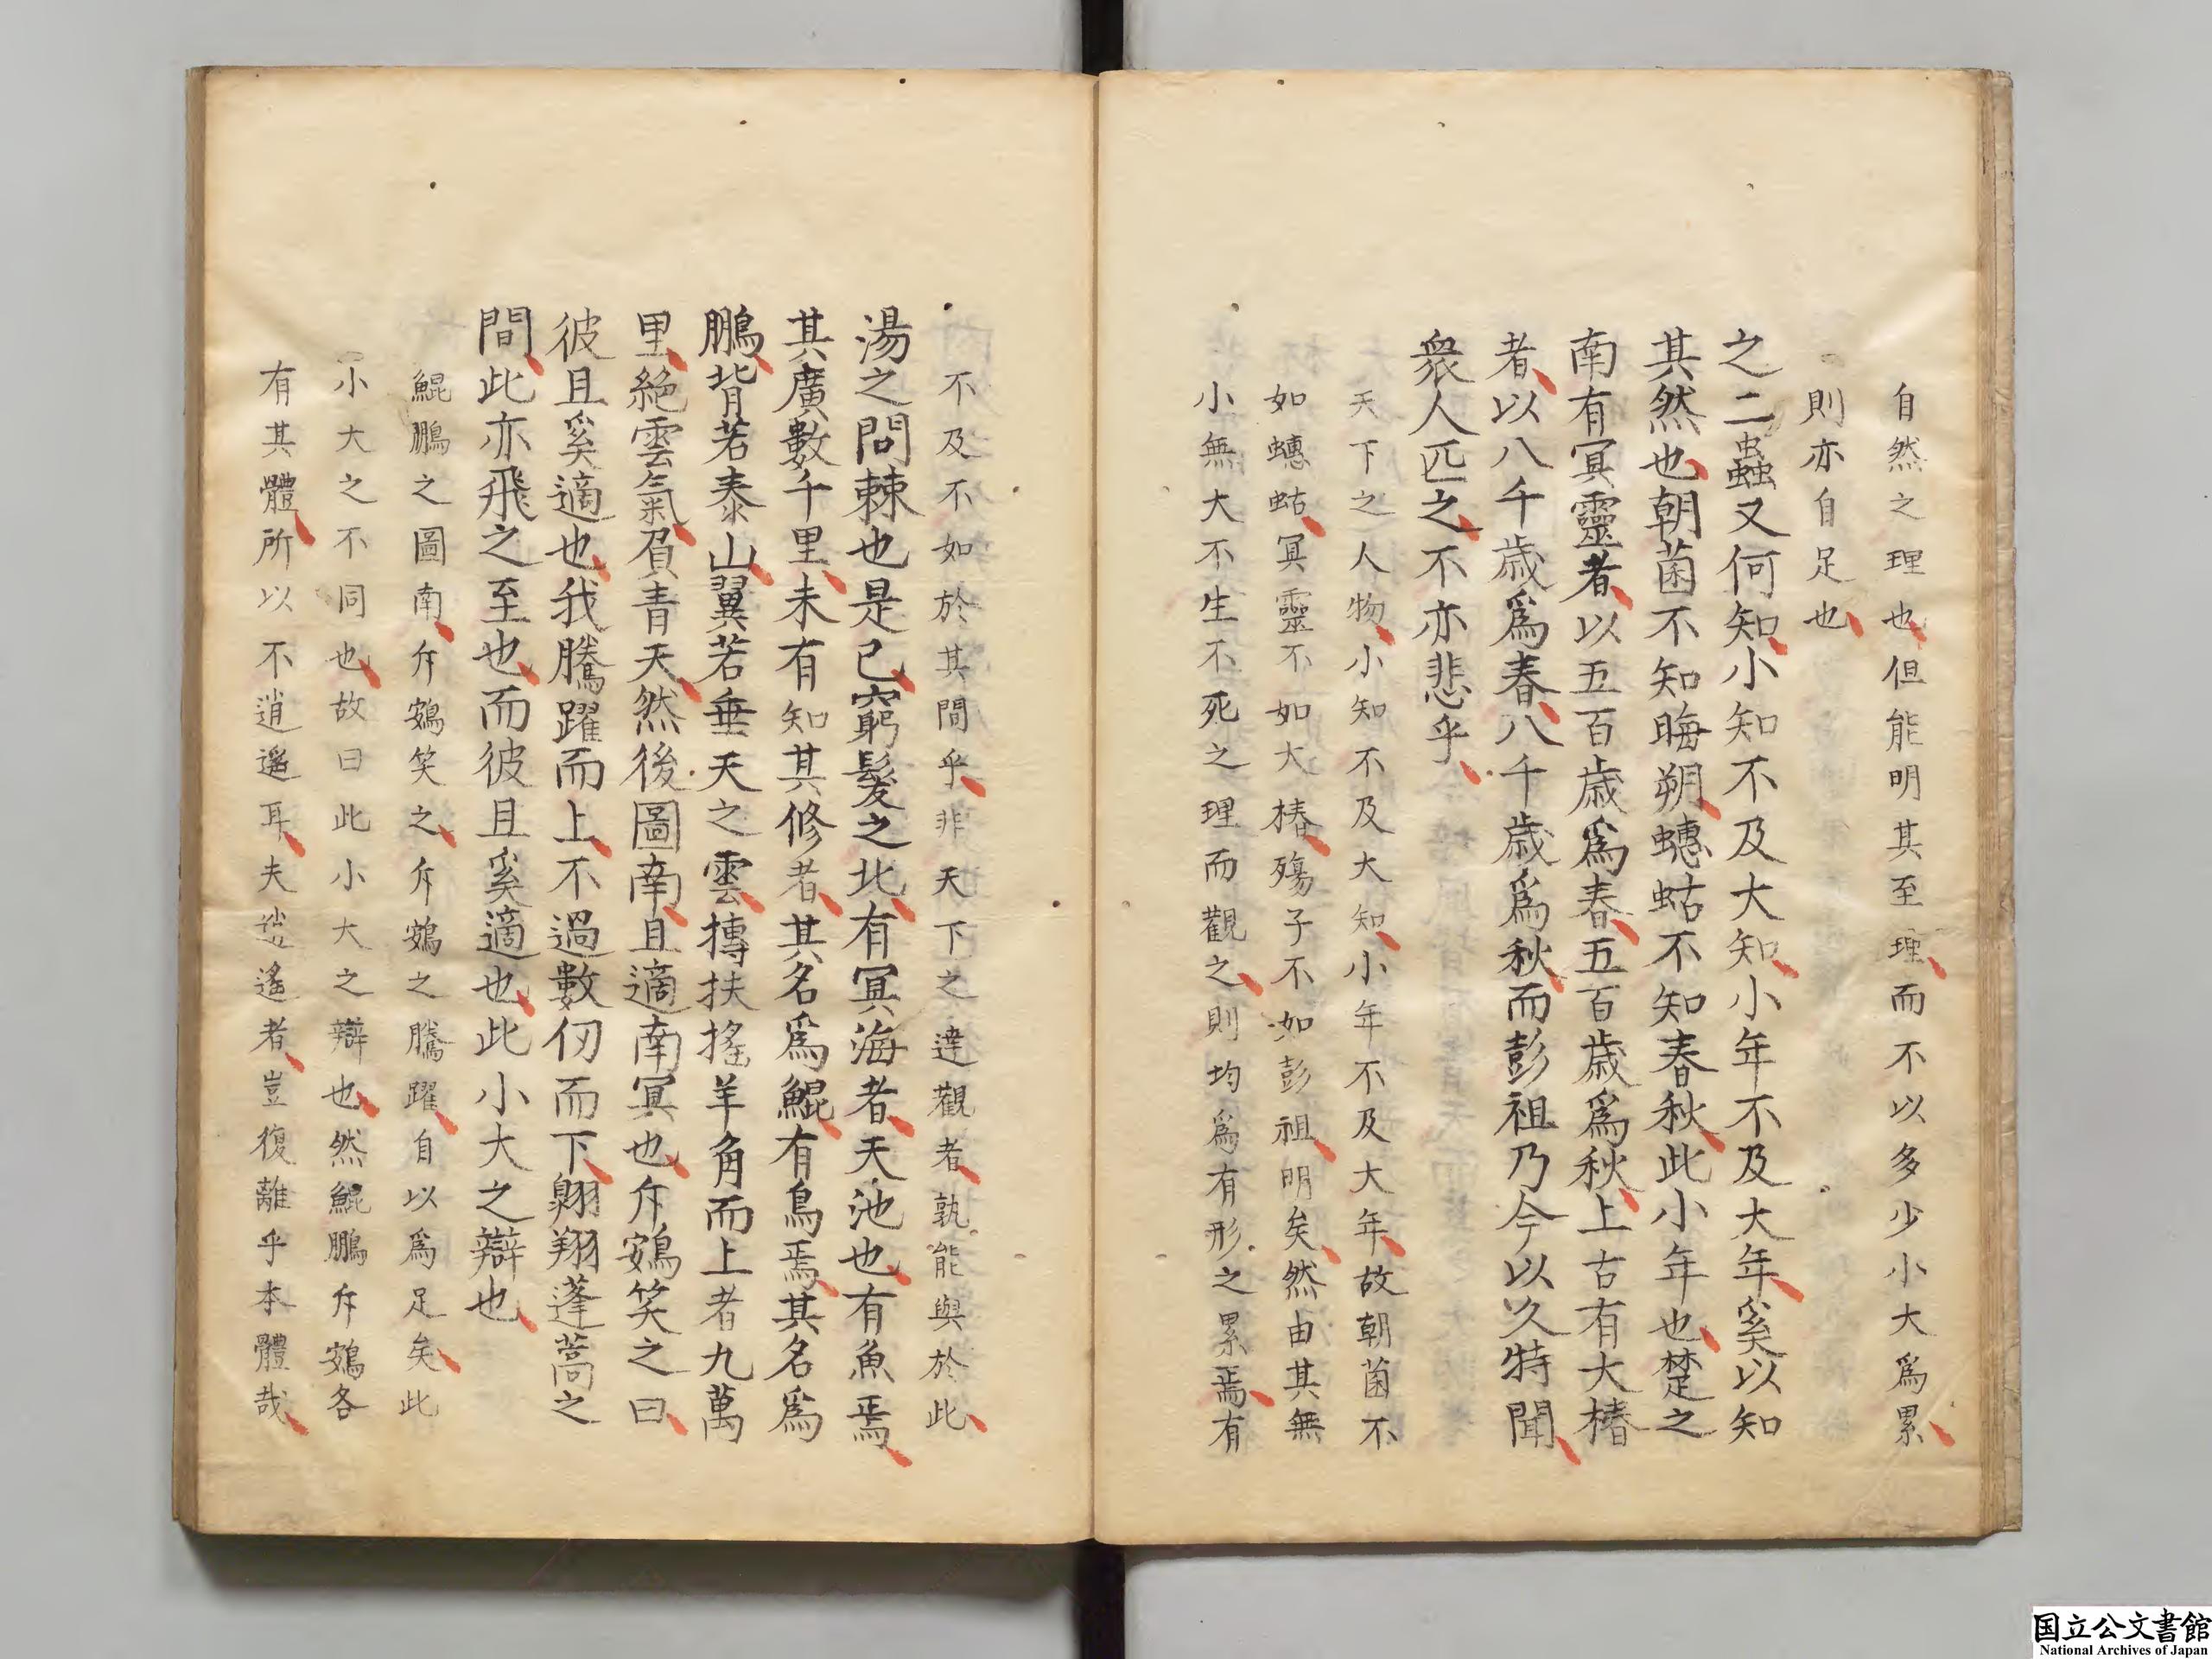 自然之理也但能明其至理而不以多少小大爲累
則亦自足也
之二蟲又何知小知不及大知小年不及大年奚以知
其然也朝菌不知晦朔蟪蛄不知春秋此小年也楚之
南有冥靈者以五百歲爲春五百歲爲秋上古有大椿
者以八千歲爲春八千歲爲秋而彭祖乃今以久特聞
衆人匹之不亦悲乎
天下之人物小知不及大知小年不及大年故朝菌不
如蟪蛄冥靈不如大椿殤子不如彭祖明矣然由其無
小無大不生不死之理而觀之則均爲有形之累焉有
不及不如於其間乎非天下之達觀者孰能與於此
湯之問棘也是已窮髮之北有冥海者天池也有魚焉
其廣數千里未有知其修者其名爲鯤有鳥焉其名爲
鵬背若泰山翼若垂天之雲摶扶搖羊角而上者九萬
里絕雲氣負青天然後圖南且適南冥也斥鴳笑之曰
彼且奚適也我騰躍而上不過數仞而下翱翔蓬蒿之
間此亦飛之至也而彼且奚適也此小大之辯也
鯤鵬之圖南斥鴳笑之斥鴳之騰躍自以爲足矣此
小大之不同也故曰此小大之辯也然鯤鵬斥鴳各
有其體所以不逍遙耳夫逍遙者豈復離乎本體哉
国立公文書館
National Archives of Japan